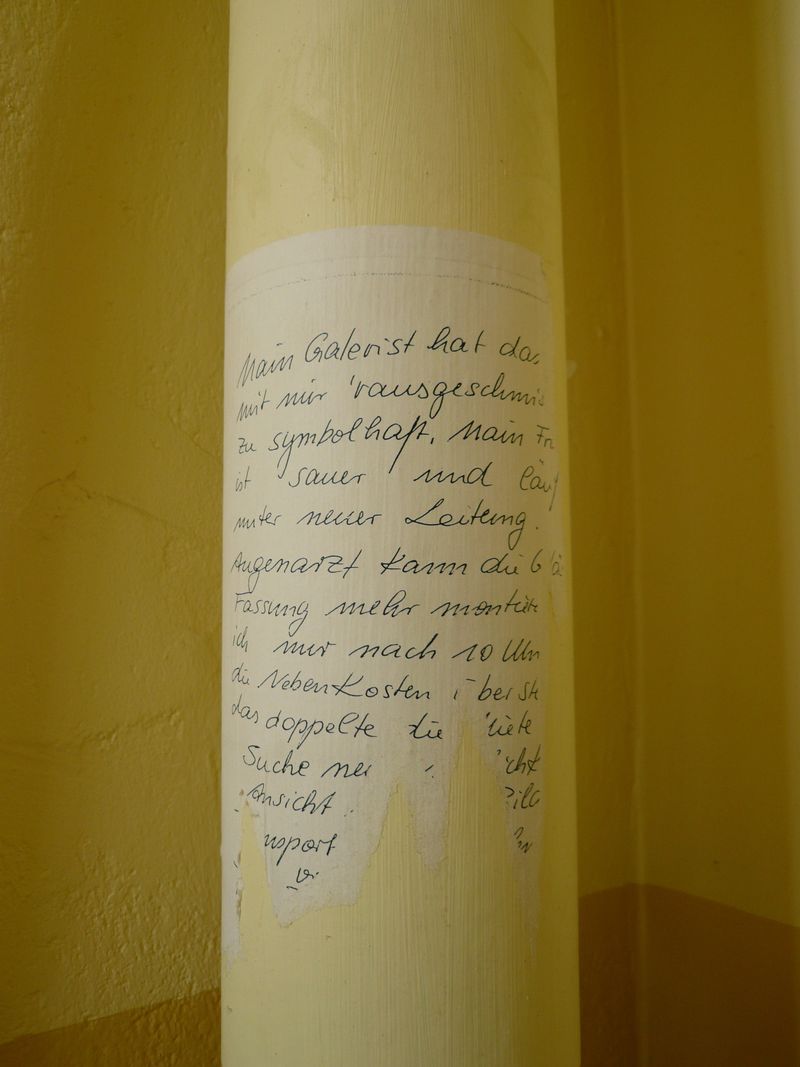 Main Galerist hat das
mit mir 'rausgeschmis
zu symbolhaft, Main Fr
ist sauer und läuf
unter neuer Leitung.
Augenarzt kann die Glä
Fassung mehr montier
ich nur nach 10 Uhr
die Nebenkosten
das doppelte die
Suche
Ansicht